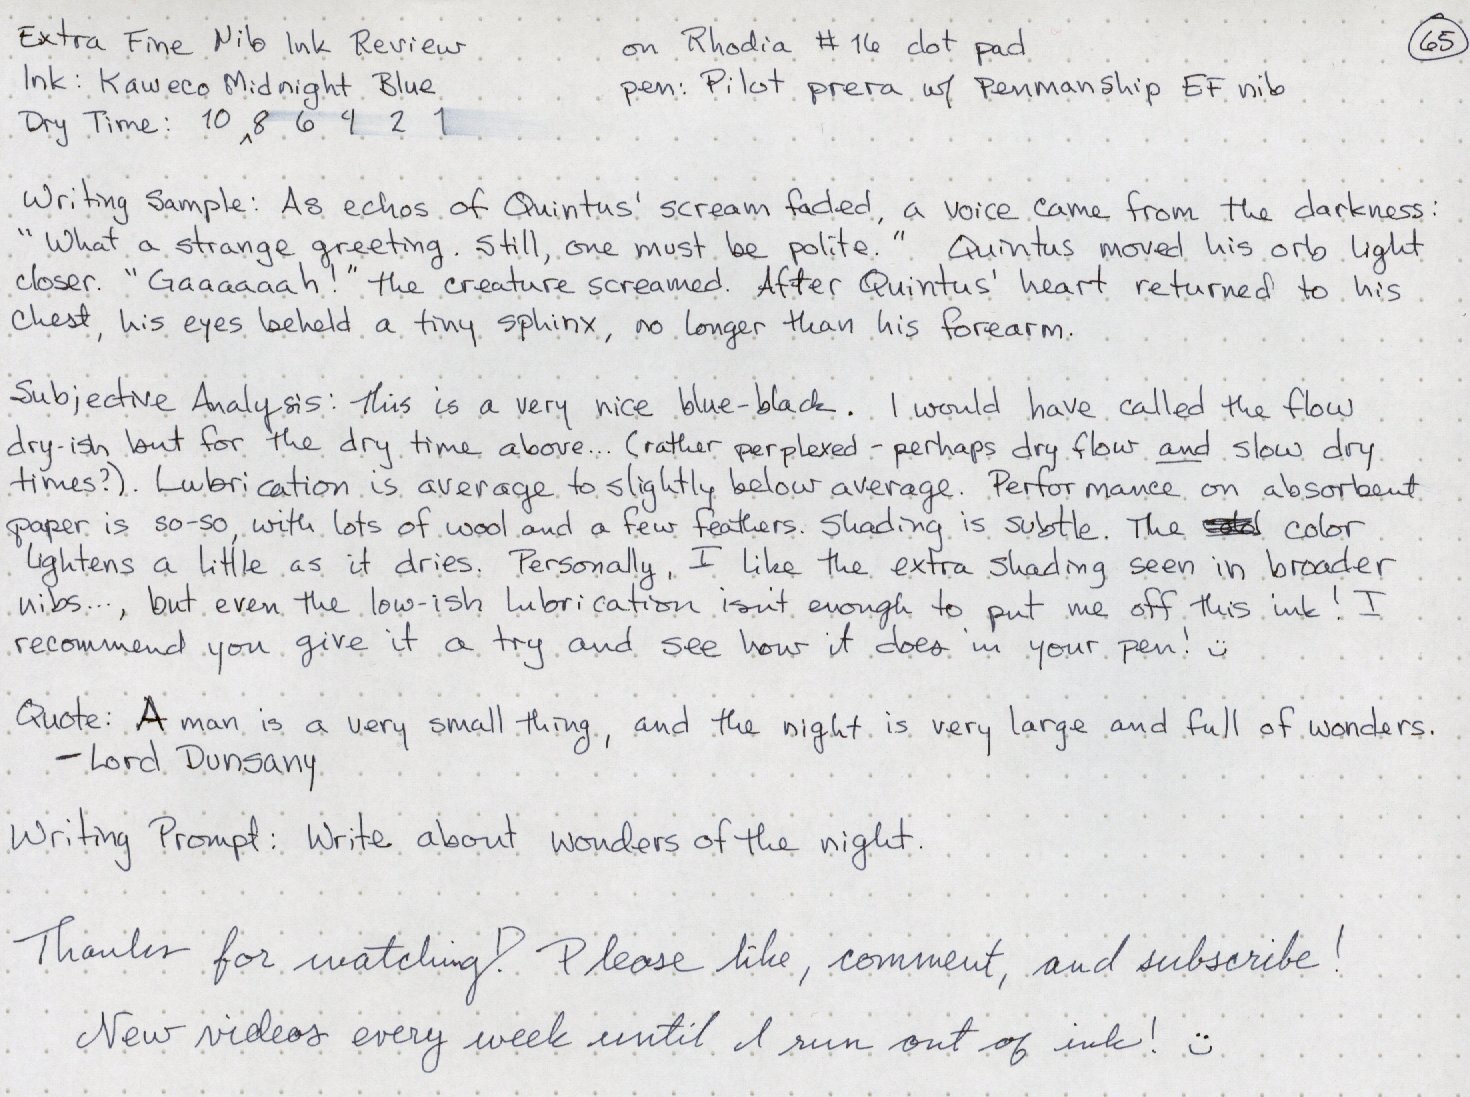 Extra Fine Nib Ink Review on Rhodia #16 dot pad 65
Ink: Kaweco Midnight Blue pen: Pilot prera w/ Penmanship EF nib
Dry Time: 10 ^ 8 6 4 2 1
Writing Sample: As echos of Quintus' scream faded, a voice came from the darkness:
"What a strange greeting. Still, one must be polite." Quintus moved his orb light
closer. "Gaaaaaah!" the creature screamed. After Quintus' heart returned to his
chest, his eyes beheld a tiny sphinx, no longer than his forearm.
Subjective Analysis: This is a very nice blue-black. I would have called the flow
dry-ish but for the dry time above... (rather perplexed - perhaps dry flow and slow dry
times?). Lubrication is average to slightly below average. Performance on absorbent
paper is so-so, with lots of wool and a few feathers. Shading is subtle. The color
lightens a little as it dries. Personally, I like the extra shading seen in broader
nibs..., but even the low-ish lubrication isn't enough to put me off this ink! I
recommend you give it a try and see how it does in your pen! :)
Quote: A man is a very small thing, and the night is very large and full of wonders.
- Lord Dunsany
Writing Prompt: Write about wonders of the night.
Thanks for watching! Please like, comment, and subscribe!
New videos every week until I run out of ink! :)